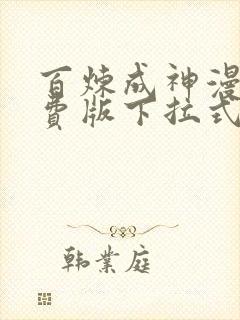 百炼成神漫
费版下拉式
韩业庭